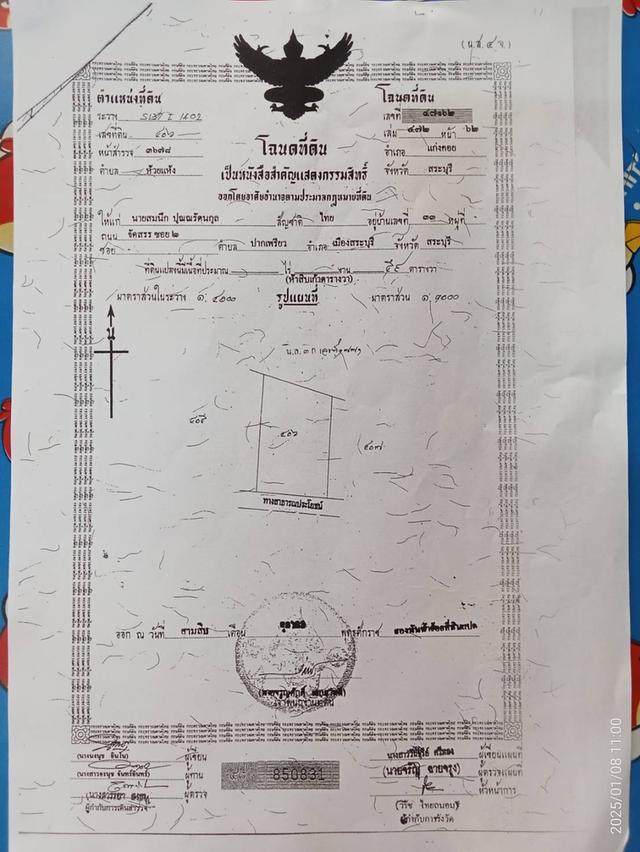 (น.ส. ๔ จ.)
ตำแหน่งที่ดิน
โฉนดที่ดิน
ระวาง
เลขที่
เลขที่ดิน ๕๐๖
เล่ม ๔๗๒ หน้า ๖๒
หน้าสำรวจ ๓๖๗๘
อำเภอ แก่งคอย
ตำบล ห้วยแห้ง
จังหวัด สระบุรี
โฉนดที่ดิน
เป็นหนังสือสำคัญแสดงกรรมสิทธิ์
ออกโดยอาศัยอำนาจตามประมวลกฎหมายที่ดิน
ให้แก่ นายสมนึก ปุณณรัตนกุล สัญชาติ ไทย อยู่บ้านเลขที่ ๓๓ หมู่ที่ -
ถนน จัดสรร ซอย ๒
ซอย - ตำบล ปากเพรียว อำเภอ เมืองสระบุรี จังหวัด สระบุรี
ที่ดินแปลงนี้มีเนื้อที่ประมาณ - ไร่ - งาน ๕๙ ตารางวา
(ห้าสิบเก้าตารางวา)
มาตราส่วนในระวาง ๑: ๔๐๐๐ รูปแผนที่ มาตราส่วน ๑: ๑๐๐๐
น
น.ส. ๓ ก
๕๐๖
๕๐๗
ทางสาธารณประโยชน์
ออก ณ วันที่ สามสิบ เดือน ตุลาคม พุทธศักราช
เจ้าพนักงานที่ดิน
(นางนงนุช อินโน) ผู้เขียน
ผู้เขียนแผนที่
(นางสาวอรนุช จันทร์อินทร์) ผู้ทาน
(นายจรัญ ฉายจรุง) ผู้ตรวจแผนที่
ผู้ตรวจ
850831
หัวหน้าการ
ผู้กำกับการเดินสำรวจ
(วิรัช ไทยถนอม)
ผู้กำกับการรังวัด
2025/01/08 11:00